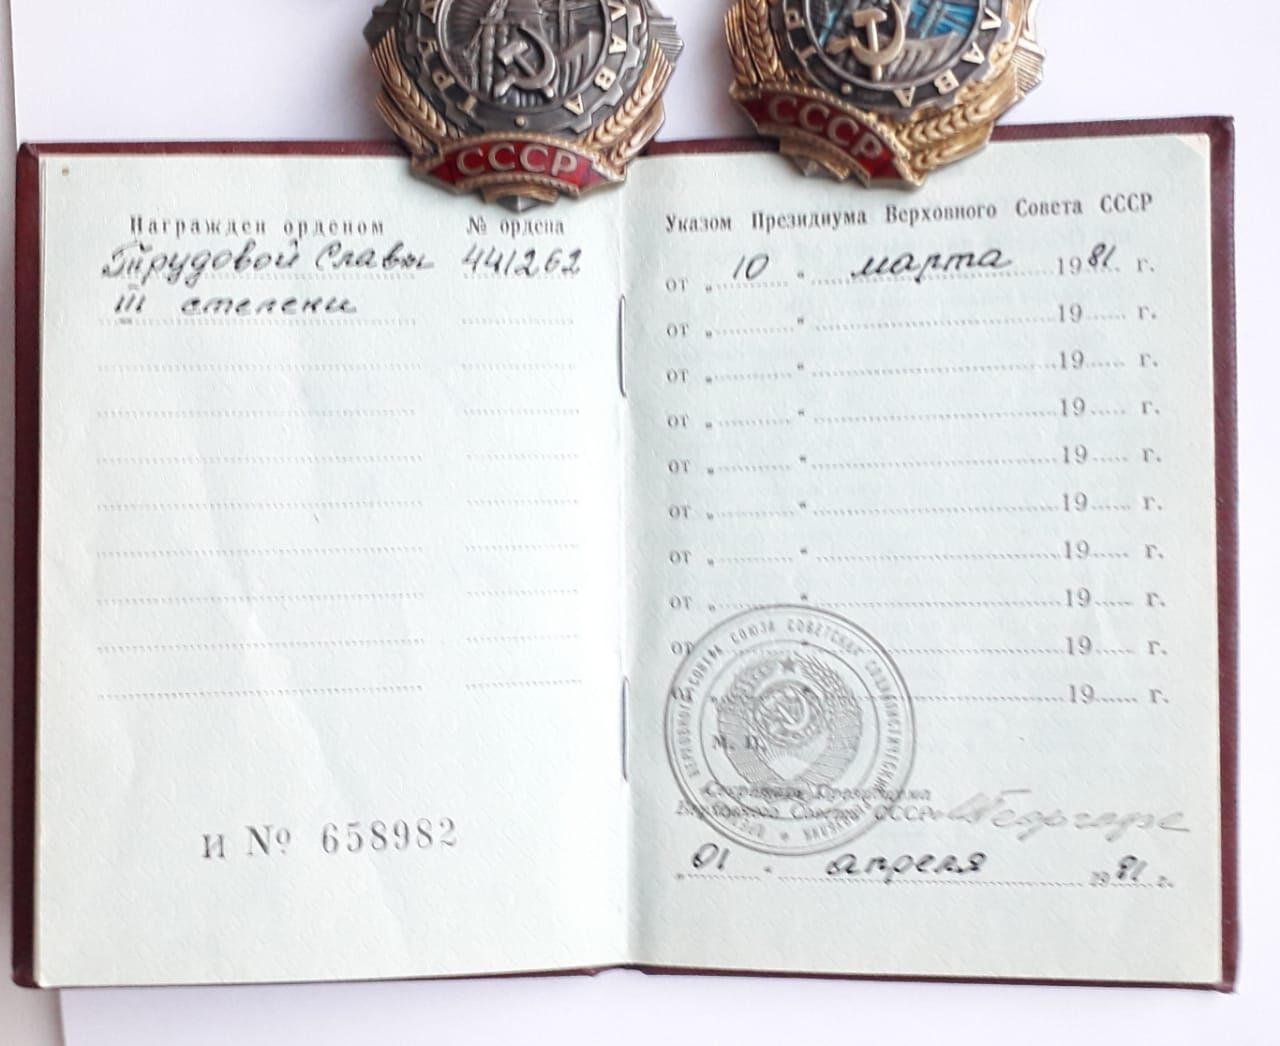 ТРУДОВАЯ СЛАВА
СССР
СССР
Награжден орденом № ордена
Трудовой Славы 441262
III степени
И № 658982
Указом Президиума Верховного Совета СССР
от „ 10 “ марта 1981 г.
от „ “ 19 г.
от „ “ 19 г.
от „ “ 19 г.
от „ “ 19 г.
от „ “ 19 г.
от „ “ 19 г.
от „ “ 19 г.
от „ “ 19 г.
от „ “ 19 г.
М. П.
Секретарь Президиума
Верховного Совета СССР
„ 01 “ апреля 1981 г.